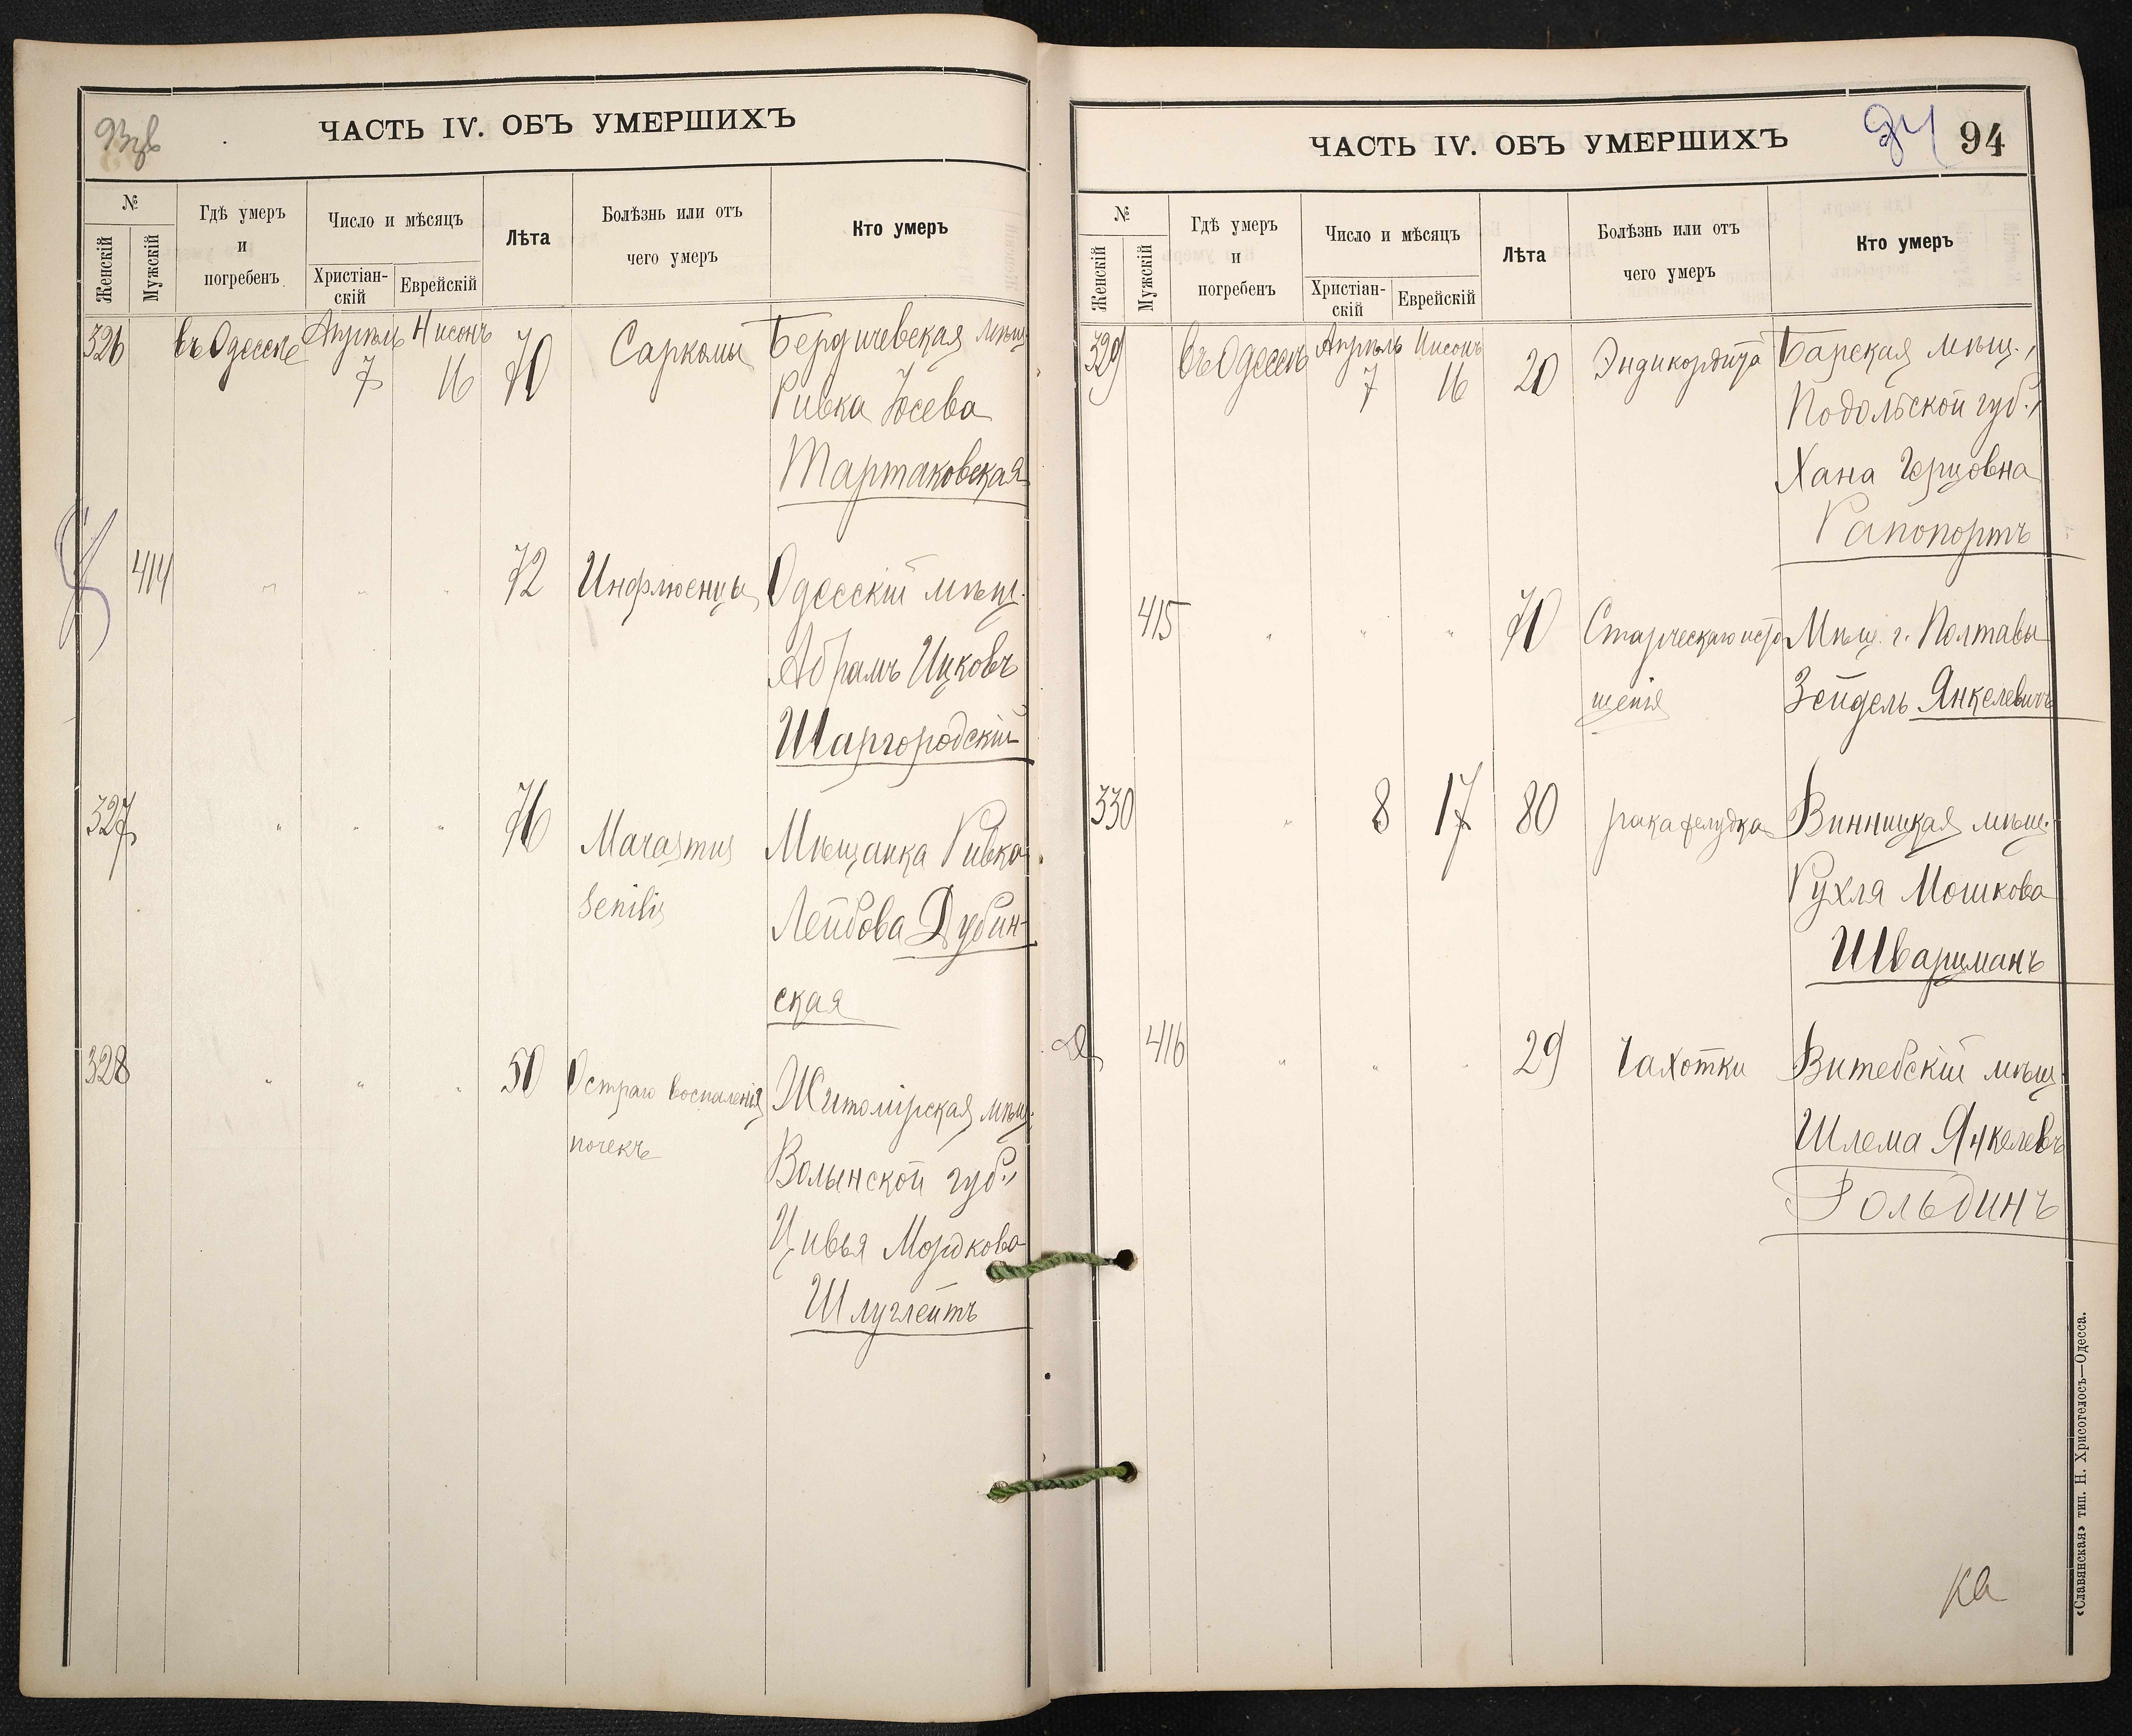 93об
ЧАСТЬ IV. ОБЪ УМЕРШИХЪ
№
Женскій
Мужскій
Гдѣ умеръ
и
погребенъ
Число и мѣсяцъ
Христіан-
скій
Еврейскій
Лѣта
Болѣзнь или отъ
чего умеръ
Кто умеръ
326 въ Одессѣ Апрѣль Нисонъ 70 Саркомы Бердичевская мѣщ.
7 16 Ривка Іосева
Тартаковская
414 " " " 72 Инфлюенцы Одесскій мѣщ.
Абрамъ Ицковъ
Шаргородскій
327 " " " 76 Marasmus Мѣщанка Ривка
senilis Лейбова Дубин-
ская
328 " " " 50 Остраго воспаленія Житомірская мѣщ.
почекъ Волынской губ.,
Цивья Мордкова
Шлуглейтъ
ЧАСТЬ IV. ОБЪ УМЕРШИХЪ
94 94
№
Женскій
Мужскій
Гдѣ умеръ
и
погребенъ
Число и мѣсяцъ
Христіан-
скій
Еврейскій
Лѣта
Болѣзнь или отъ
чего умеръ
Кто умеръ
329 въ Одессѣ Апрѣль Нисонъ 20 Эндикордита Барская мѣщ.,
7 16 Подольской губ.,
Хана Герцовна
Рапопортъ
415 " " " 70 Старческаго исто Мѣщ. г. Полтавы
щенія Зейдель Янкелевичъ
330 " 8 17 80 рака желудка Винницкая мѣщ.
Рухля Мошкова
Шварцманъ
416 " " " 29 Чахотки Витебскій мѣщ.
Шлема Янкелевъ
Гольдинъ
«Славянская» тип. Н. Хрисогелосъ—Одесса.